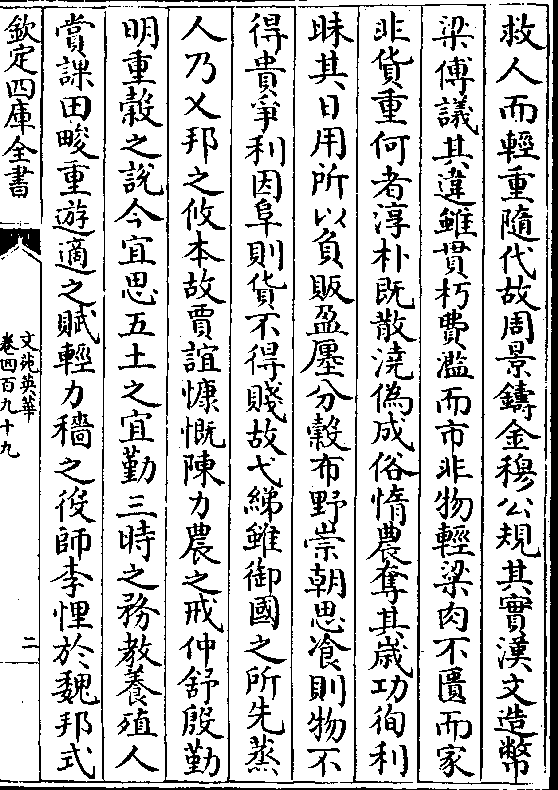 救人而輕重隨代故周景鑄金穆公規其實漢文造幣
梁傅議其違雖貫朽費濫而市非物輕粱肉不匱而家
非貨重何者淳朴既散澆偽成俗惰農奪其歳功徇利
昧其日用所以負販盈廛分糓布野崇朝思飡則物不
得貴爭利因阜則貨不得賤故弋綈雖御國之所先蒸
人乃乂邦之攸本故賈誼慷慨陳力農之戒仲舒殷勤
明重糓之説今宜思五土之宜勤三時之務教養殖人
賞課田畯重遊適之賦輕力穡之役師李悝於魏邦式
欽定四庫全書
文苑英華
卷四百九十九
二